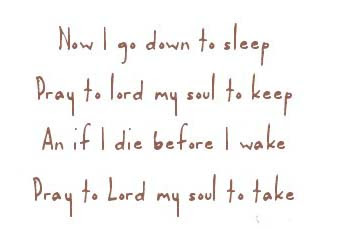 Now I go down to sleep
Pray to lord my soul to keep
An if I die before I wake
Pray to Lord my soul to take